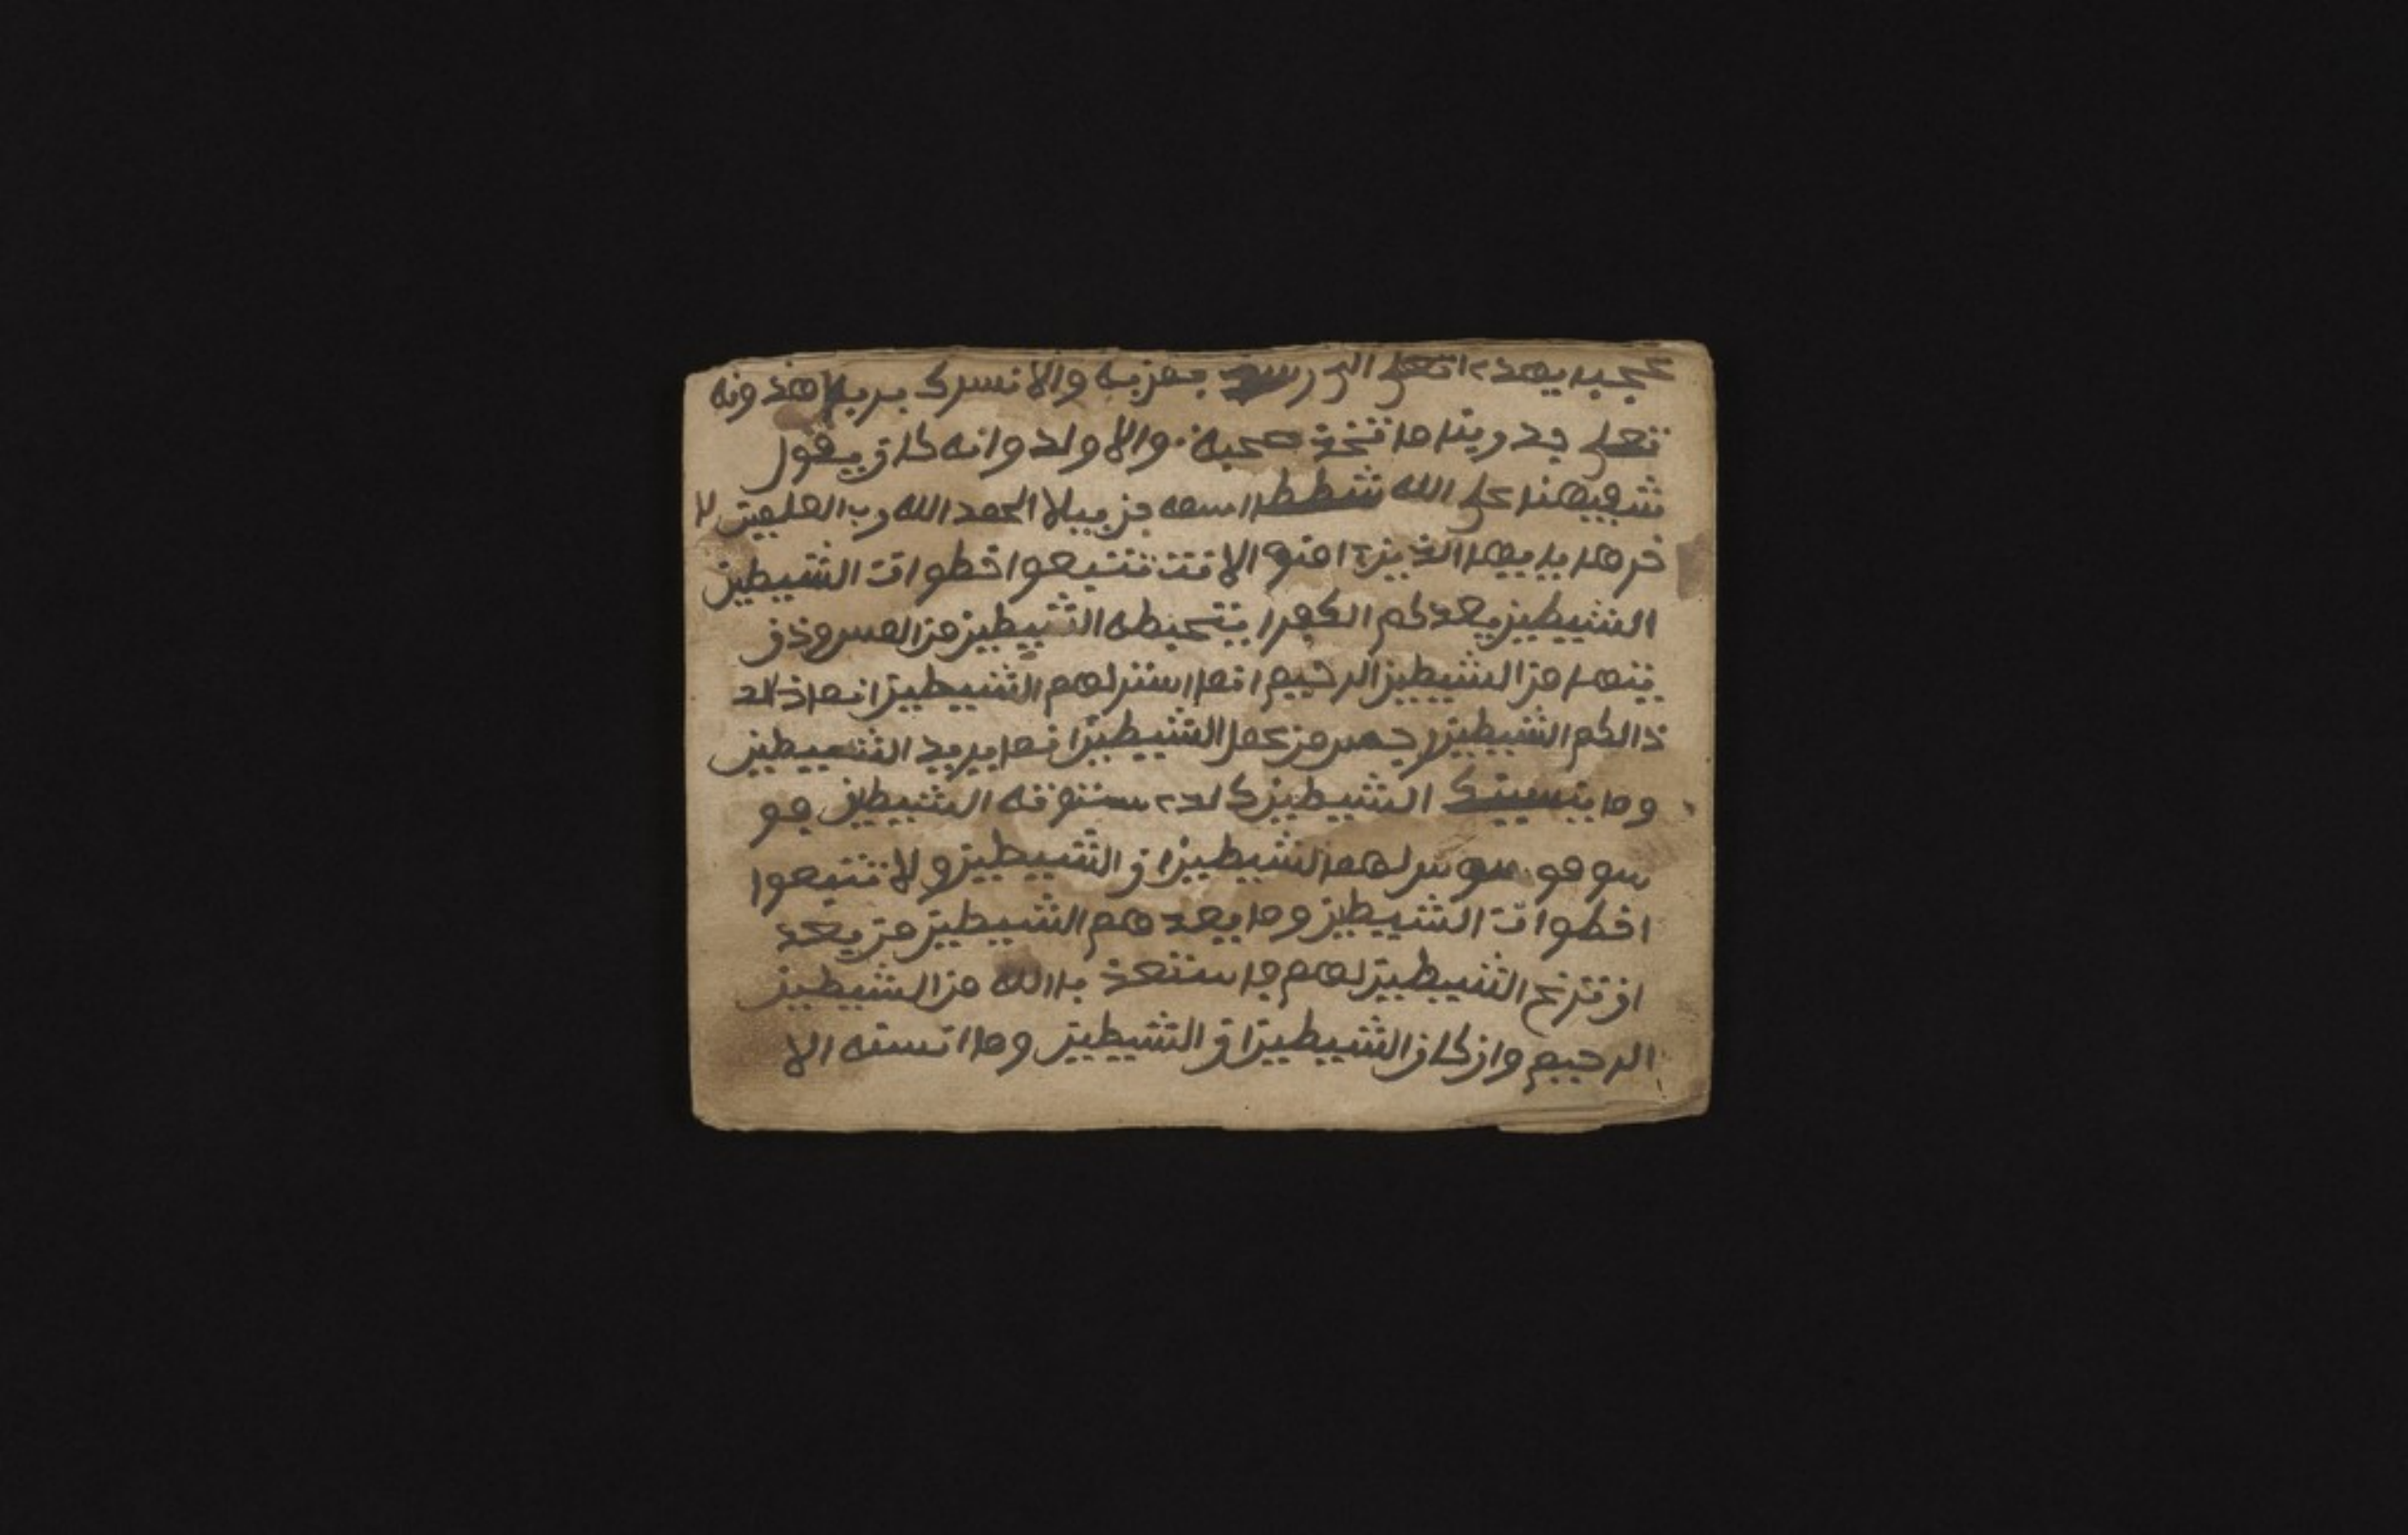 عجبا يهدء اتعلى الى رسد بهزبه والا نسرك بربه احد ونه
تعلى جد ربنا ما تخذ صحبة والا ولد وانه كان يقول
شفيهنا على الله شططا اسمه جزيبلا الحمد الله رب العلمين لا
خرها يا ييها الذين ءامنوا الا تتتبعوا خطوات الشيطين
الشيطين يعدكم الكفرا يتخبطه الشييطين من المس وذ ن
يتها من الشيطين الرجيم انما استزلهم الشييطين انما ذالك
ذالكم الشيطين رجس من عمل الشيطين انما يريد الشييطين
وما ينسينك الشييطين كالذء ستهوته الشييطين فو
سو فو سوس لهما الشييطين ان الشييطين ولا تتبعوا
اخطوات الشييطين وما يعدهم الشييطين من بعد
ان تنزغ الشييطين لهم فاستعذ باالله من الشيطين
الرجيم وان كان الشييطين ان الشييطين وما انسنه الا